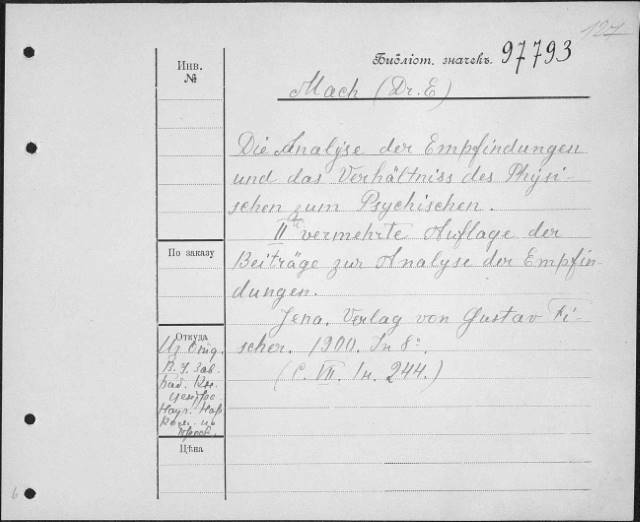 127
Библiот. значекъ. 97793
Инв.
№
Mach (Dr. E)
Die Analyse der Empfindungen
und das Verhältniss des Physi-
schen zum Psychischen.
II te vermehrte Auflage der
Beiträge zur Analyse der Empfin-
dungen.
Jena. Verlag von Gustav Fi-
scher. 1900. In 8º.
(C. VII. In. 244.)
По заказу
Откуда
Из Отд.
Зав.
Кн.
Центро
Науч. Нар
Ком. по
Просв.
Цѣна
6